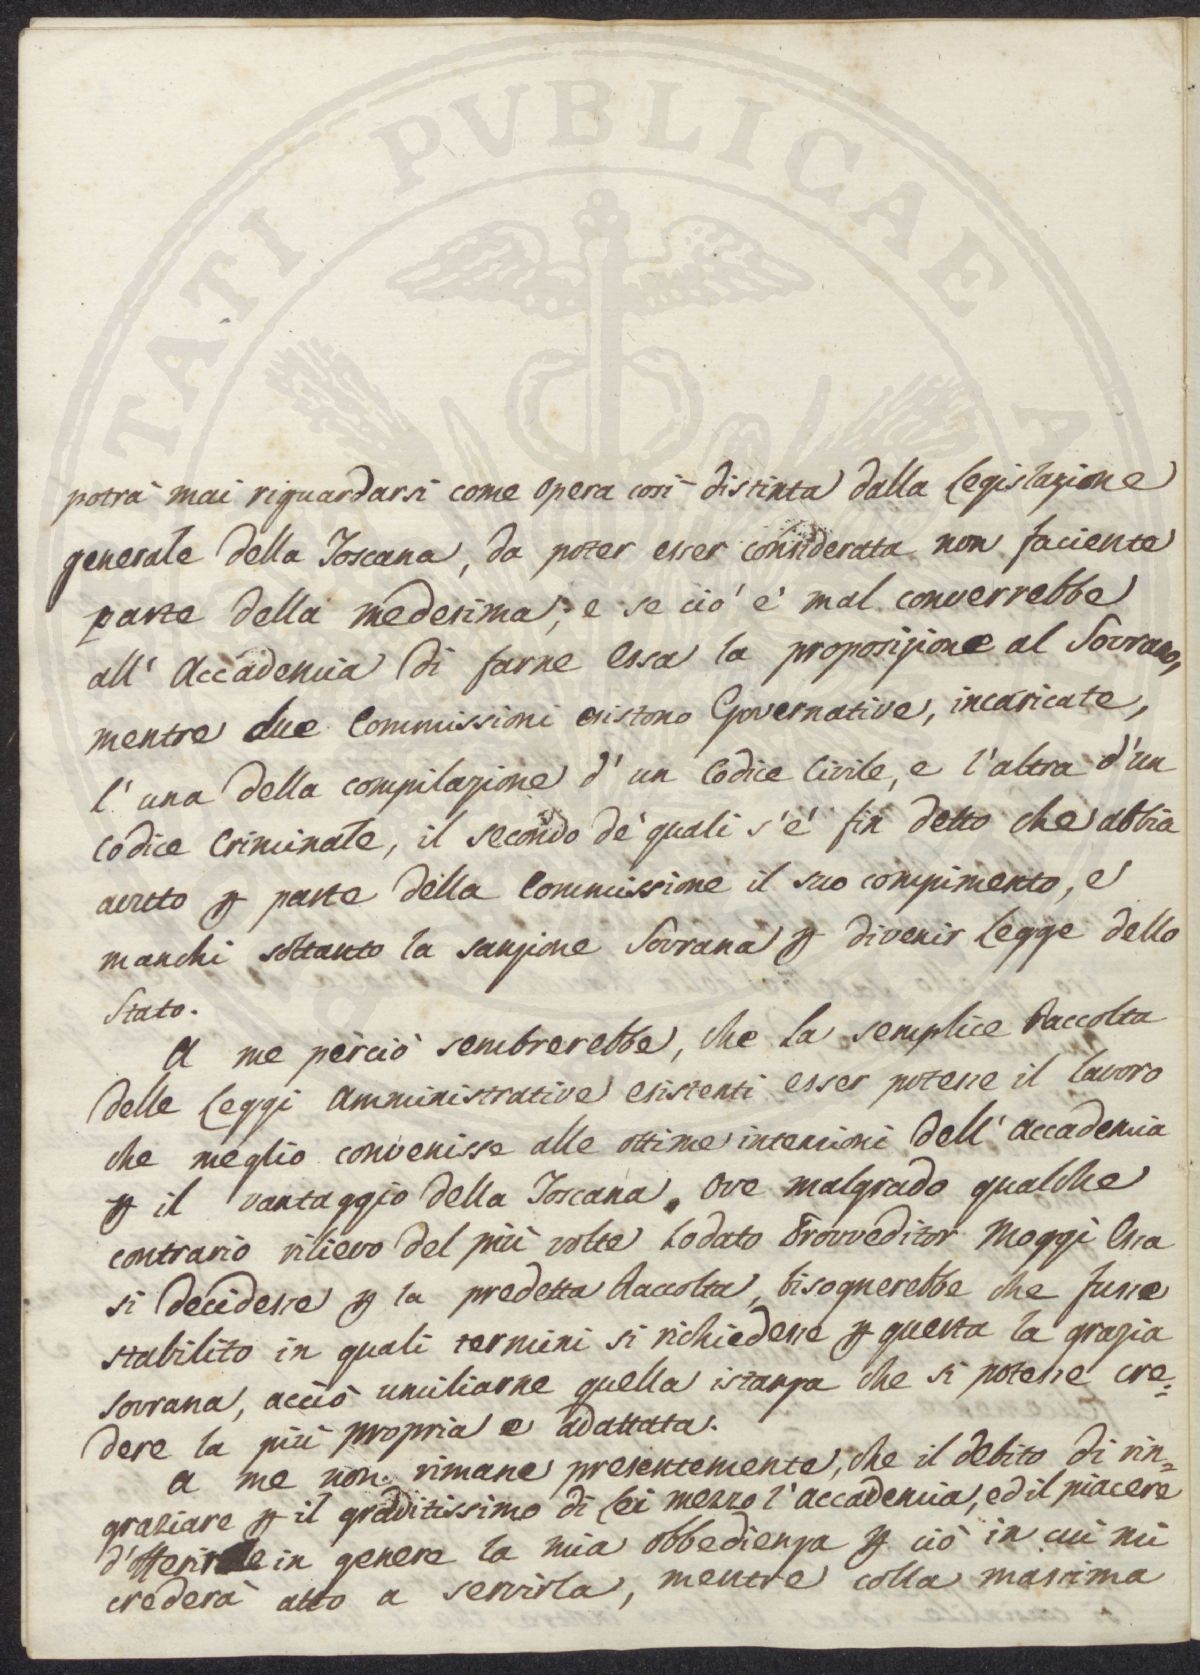 potrà mai riguardarsi come opera così distinta dalla Legislazione
generale della Toscana, da poter esser considerata non faciente
parte della medesima; e se ciò è mal converrebbe
all' Accademia di farne essa la proposizione al Sovrano,
mentre due Commissioni esistono Governative, incaricate,
l' una della compilazione d' un Codice Civile, e l'altra d'un
Codice Criminale, il secondo de' quali s'è fin detto che abbia
avuto p parte della Commissione il suo compimento, e
manchi soltanto la sanzione Sovrana p divenir Legge dello
Stato.
A me perciò sembrerebbe, che la semplice Raccolta
delle Leggi Amministrative esistenti esser potesse il lavoro
che meglio convenisse alle ottime intenzioni dell' Accademia
p il vantaggio della Toscana. Ove malgrado qualche
contrario rilievo del più volte Lodato Provveditor Moggi Essa
si decidesse p la predetta Raccolta, bisognerebbe che fusse
stabilito in quali termini si richiedesse p questa la grazia
Sovrana, acciò umiliarne quella istanza che si potesse cre=
dere la più propria e adattata.
A me non rimane presentemente, che il debito di rin=
graziare p il graditissimo di Lei mezzo l'Accademia, ed il piacere
d'offerirle in genere la mia obbedienza p ciò in cui mi
crederà atto a servirla, mentre colla massima
TATI PVBLICAE A